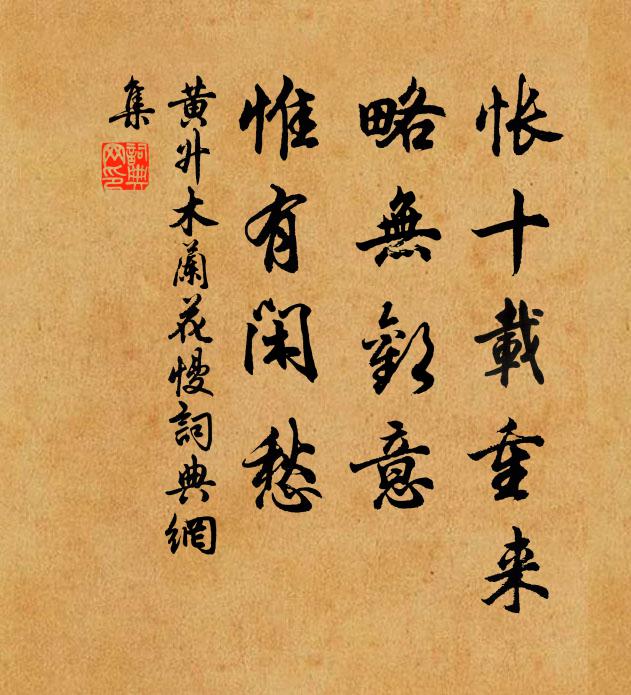 悵十載重来
略無歡意
惟有閑愁
黄升木蘭花慢詞典網
集
詞典
网印